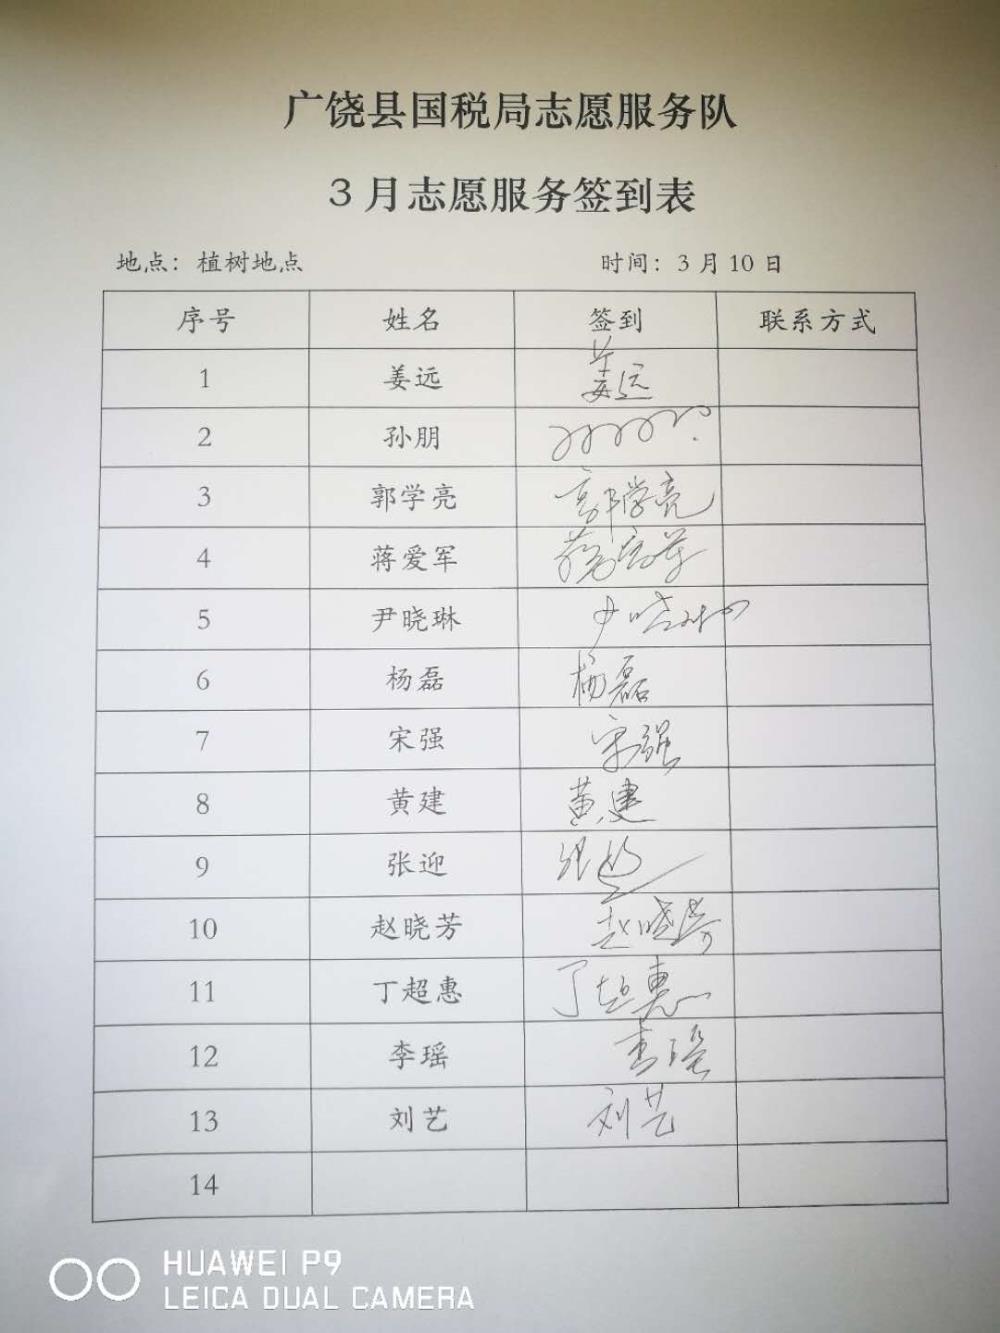 广饶县国税局志愿服务队
3月志愿服务签到表
地点：植树地点 时间：3月10日
序号 姓名 签到 联系方式
1 姜远 姜远
2 孙朋
3 郭学亮 郭学亮
4 蒋爱军 蒋爱军
5 尹晓琳 尹晓琳
6 杨磊 杨磊
7 宋强 宋强
8 黄建 黄建
9 张迎 张迎
10 赵晓芳 赵晓芳
11 丁超惠 丁超惠
12 李瑶 李瑶
13 刘艺 刘艺
14
HUAWEI P9
LEICA DUAL CAMERA